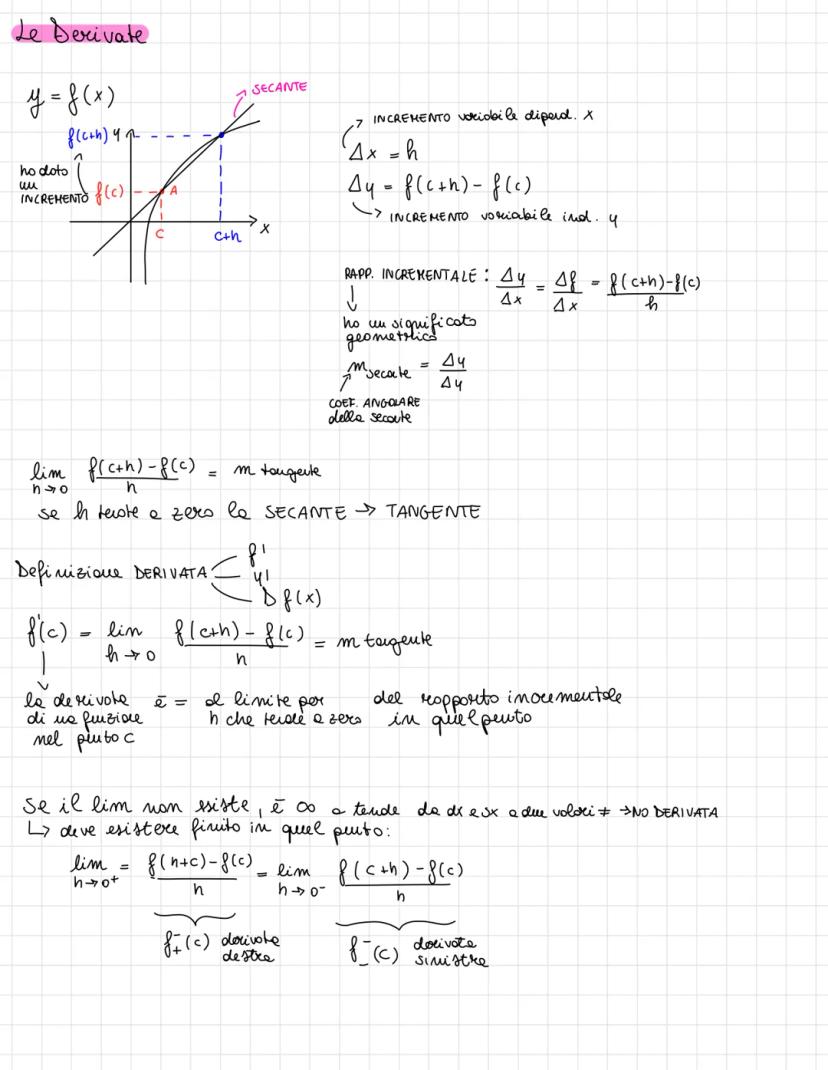 Le Derivate
y = f(x)
SECANTE
f(c+h) y
ho dato
un
INCREMENTO
f(c)
A
C
c+h
x
INCREMENTO variabile dipend. x
Δx = h
Δy = f(c+h) - f(c)
INCREMENTO variabile ind. y
RAPP. INCREMENTALE : Δy/Δx = Δf/Δx = f(c+h)-f(c)/h
ho un significato
geometrico
m secante = Δy/Δy
COEF. ANGOLARE
della secante
lim h→0 f(c+h)-f(c)/h = m tangente
se h tende a zero la SECANTE → TANGENTE
Definizione DERIVATA
f'
y'
D f(x)
f'(c) = lim h→0 f(c+h) - f(c)/h = m tangente
la derivata è = al limite per del rapporto incrementale
di una funzione h che tende a zero in quel punto
nel punto c
Se il lim non esiste, è ∞ o tende da dx e sx a due valori ≠ → NO DERIVATA
↳ deve esistere finito in quel punto:
lim h→0⁺ = f(h+c)-f(c)/h = lim h→0⁻ f(c+h)-f(c)/h
f₊⁻(c) derivata
destra
f₋⁻(c) derivata
sinistra